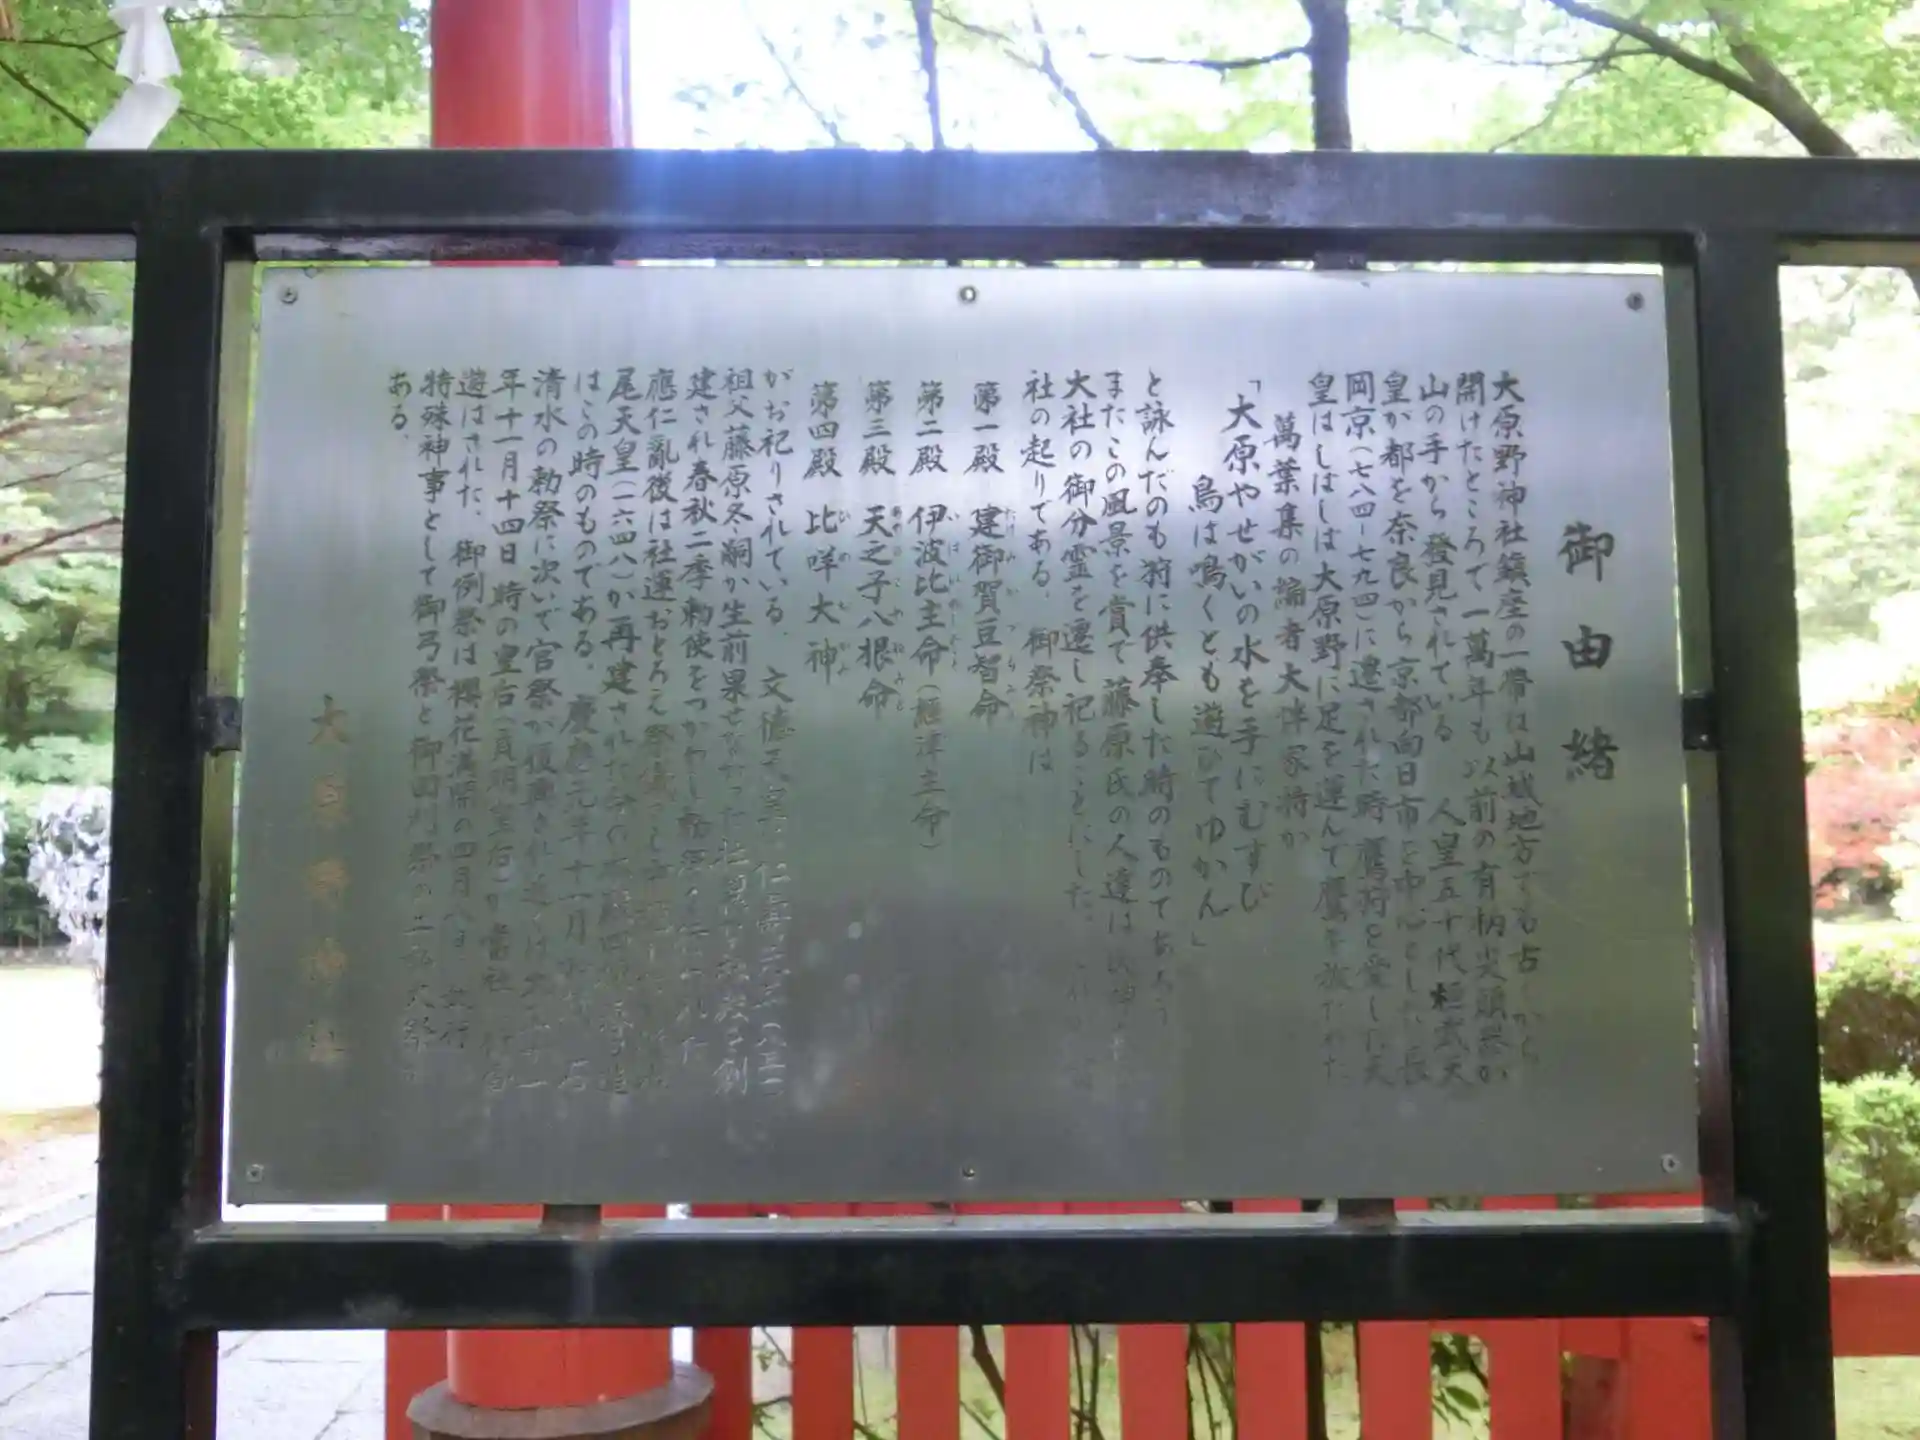 御由緒
大原野神社鎮座の一帯は山城地方でも古くから
開けたところで一萬年も以前の有柄尖頭器が
山の手から發見されている 人皇五十代桓武天
皇が都を奈良から京都向日市を中心とした長
岡京(七八四-七九四)に遷された時 鷹狩を愛した天
皇はしばしば大原野に足を運んで鷹を放たれた
萬葉集の編者大伴家持が
「大原やせがいの水を手にむすび
鳥は鳴くとも遊びてゆかん」
と詠んだのも狩に供奉した時のものであろう
またこの風景を賞で藤原氏の人達は
大社の御分霊を遷し祀ることにした.
社の起りである. 御祭神は
第一殿 建御賀豆智命
第二殿 伊波比主命(經津主命)
第三殿 天之子八根命
第四殿 比咩大神
がお祀りされている. 文徳天皇 仁壽元年(八五一)
祖父藤原冬嗣が生前果せなかった 社殿を創
建され春秋二季勅使をつかわし
應仁亂後は社運おとろえ祭儀
尾天皇(一六四八)が再建された
はこの時のものである. 慶應元年十一月
清水の勅祭に次いで官祭が復興され
年十一月十四日 時の皇后(貞明皇后)が當社
遊はされた. 御例祭は櫻花満開の四月八日
特殊神事として御弓祭と御田刈祭の
ある.
大原野神社